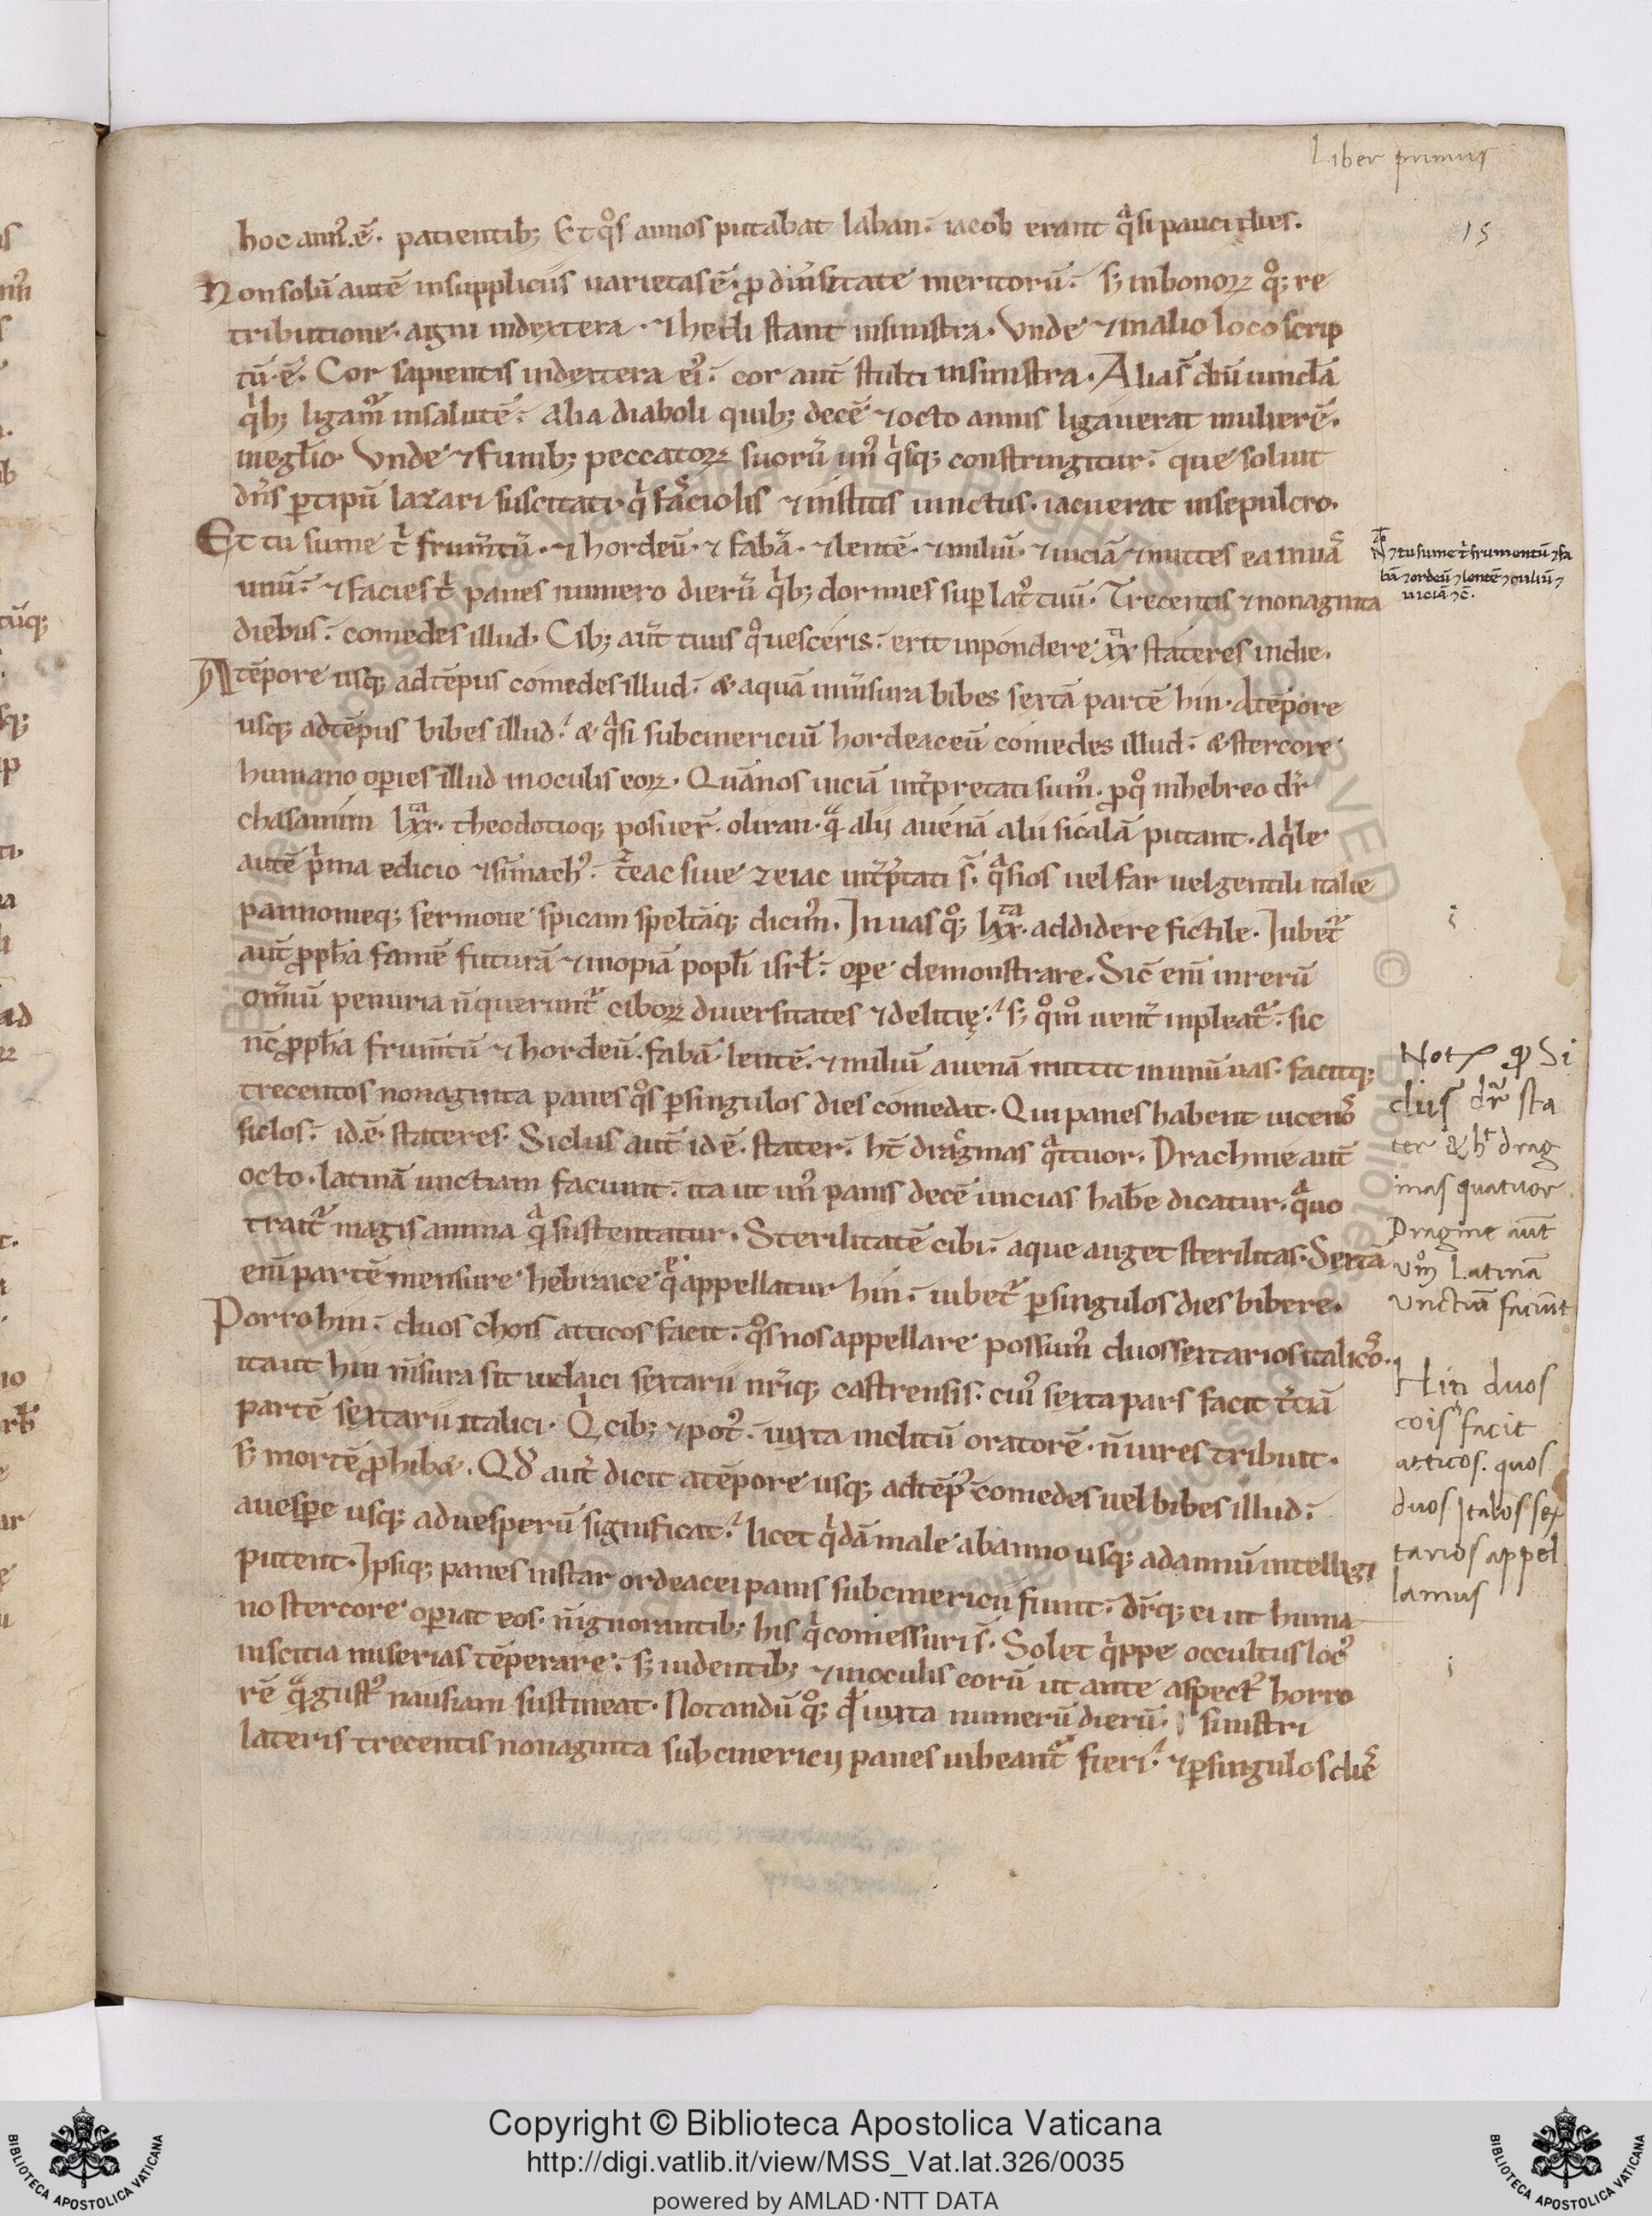 Liber primus
15
hoc ann᷒.ē. patientib; Et qͦs annos putabat laban. iacob erant qͣsi pauci dies.
Non solū autē in suppliciis uarietas ē. ꝓ diuͥsitate meritorū. sꝫ in bonoꝝ qͦꝫ re
tributione. agni in dextera. ⁊ hedi stant in sinistra. Vnde ⁊ in alio loco scrip
tū.ē. Cor sapientis in dextera ei᷒. cor aut̄ stulti in sinistra. Alias dn̄i uincl̄a
qͥb; ligam᷒ in salutē. alia diaboli quib; decē ⁊ octo annis ligauerat mulierē.
in eglīo. Vnde ⁊ funib; peccatoꝝ suorū un᷒ qͥsq; constringitur. que soluit
dn̄s ꝑ tipū lazari suscitati qͥ fasciolis ⁊ institis uinctus. iacuerat in sepulcro.
Et tu sume tͥ frum̄tū. ⁊ hordeū. ⁊ fabā. ⁊ lentē. ⁊ miliū. ⁊ uiciā ⁊ mittes ea in uas
unū. ⁊ facies tͥ panes numero dierū qͥb; dormies sup lat᷒ tuū. Trecentis ⁊ nonaginta
diebus. comedes illud. Cib; aut̄ tuus qͦ uesceris. erit in pondere xx stateres in die.
A tēpore usq; ad tēpus comedes illud. & aquā in mensura bibes sextā partē hin. A tēpore
usq; ad tēpus bibes illud. & qͣsi subcinericiū hordeaceū comedes illud. & stercore
humano opies illud in oculis eoꝝ. Quā nos uiciā int̄pretati sum᷒. ꝓ qͦ in hebreo dr̄
chasamim lxx. theodotioq; posuer̄. oliran. qͣ alij auenā alii sicalā putant. Aqͥle
autē pͥma edicio ⁊ simach᷒. teac siue zeiac int̄p̄tati s̄. qͣs nos uel far uel gentili italie
pannonieq; sermone spicam speltāq; dicim᷒. In uas qͦꝫ lxx. addidere fictile. Iubet᷑
aut̄ ꝓph̄a famē futurā ⁊ inopiā popl̄i isrl̄. ope demonstrare. Sic eni in rerū
om̄iū penuria n̄ querunt᷑ ciboꝝ diuersitates ⁊ delitię. sꝫ qͦm͂ uent̄ inpleat᷑. sic
nc̄ ꝓph̄a frum̄tū ⁊ hordeū. fabā. lentē. ⁊ miliū auenā mittit in unū uas. facitq;
trecentos nonaginta panes qͦs ꝑ singulos dies comedat. Qui panes habent uicenos
siclos. id.ē. stateres. Siclus aut̄ id ē. stater. ht̄ dragmas qͣttuor. Drachme aut̄
octo. latinā unctiam faciunt. ita ut un᷒ panis decē uncias habe dicatur. qͣ uo
trait᷑ magis anima qͣ sustentatur. Sterilitatē cibi. aque auget sterilitas. Sexta
eni partē mensure hebraice que appellatur hin. iubet᷑ ꝑ singulos dies bibere.
Porro hin. duos chois atticos facit. qͦs nos appellare possum᷒ duos sextarios italicos.
ita ut hin m̄sura sit iudaici sextarii nr̄iq; castrensis. cui᷒ sexta pars facit t̄ciā
partē sextarii italici. Qͥ cib; ⁊ pot᷒. iuxta inclitū oratorē. n̄ uires tribuit.
sꝫ mortē ꝓhibet. Qd̄ aut̄ dicit a tēpore usq; ad tēp᷒ comedes uel bibes illud.
a uespe usq; ad uesperū significat. licet qͥdā male ab anno usq; ad annū intelligi
putent. Ipsiq; panes instar ordeacei panis subcinericii fiunt. dr̄q; ei ut huma
no stercore opiat eos. n̄ ignorantib; his qͥ comessuri s̄. Solet qͥppe occultus loc᷒
inscitia miserias tēperare. sꝫ uidentib; ⁊ in oculis eorū ut ante aspect᷒ horro
rē qͣ gust᷒ nausiam sustineat. Notandū qͦꝫ qd iuxta numerū dierū. sinistri
lateris trecentis nonaginta subcinericij panes iubeant᷑ fieri. ⁊ ꝑ singulos dies
⁊ tu sume tͥ frumentū ⁊ fa
bā ⁊ ordeū ⁊ lentē ⁊ miliū ⁊
uiciā ⁊c̄.
Not ꝙ Si
clus dr̄ sta
ter & ht drag
mas quatuor.
Dragme aut̄
Latinā
unctiā faciūt
Hin duos
cois facit
atticos. quos
duos Italos sex
tarios appel
lamus
Copyright © Biblioteca Apostolica Vaticana
http://digi.vatlib.it/view/MSS_Vat.lat.326/0035
powered by AMLAD·NTT DATA
BIBLIOTECA APOSTOLICA VATICANA
BIBLIOTECA APOSTOLICA VATICANA